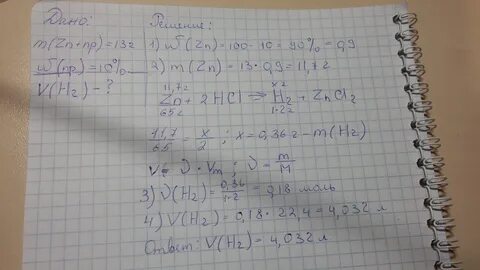 Дано:
m(Zn+пр)=13г
ω(пр)=10%
V(H₂)-?
Решение:
1) ω(Zn)=100-10=90%=0,9
2) m(Zn)=13·0,9=11,7г
11,7г x г
Zn + 2HCl ⇒ H₂ + ZnCl₂
65г 1·2г
11,7/65 = x/2 ; x=0,36г - m(H₂)
V=ν·Vm ; ν=m/M
3) ν(H₂)=0,36/1·2=0,18 моль
4) V(H₂)=0,18·22,4=4,032л
Ответ: V(H₂)=4,032л